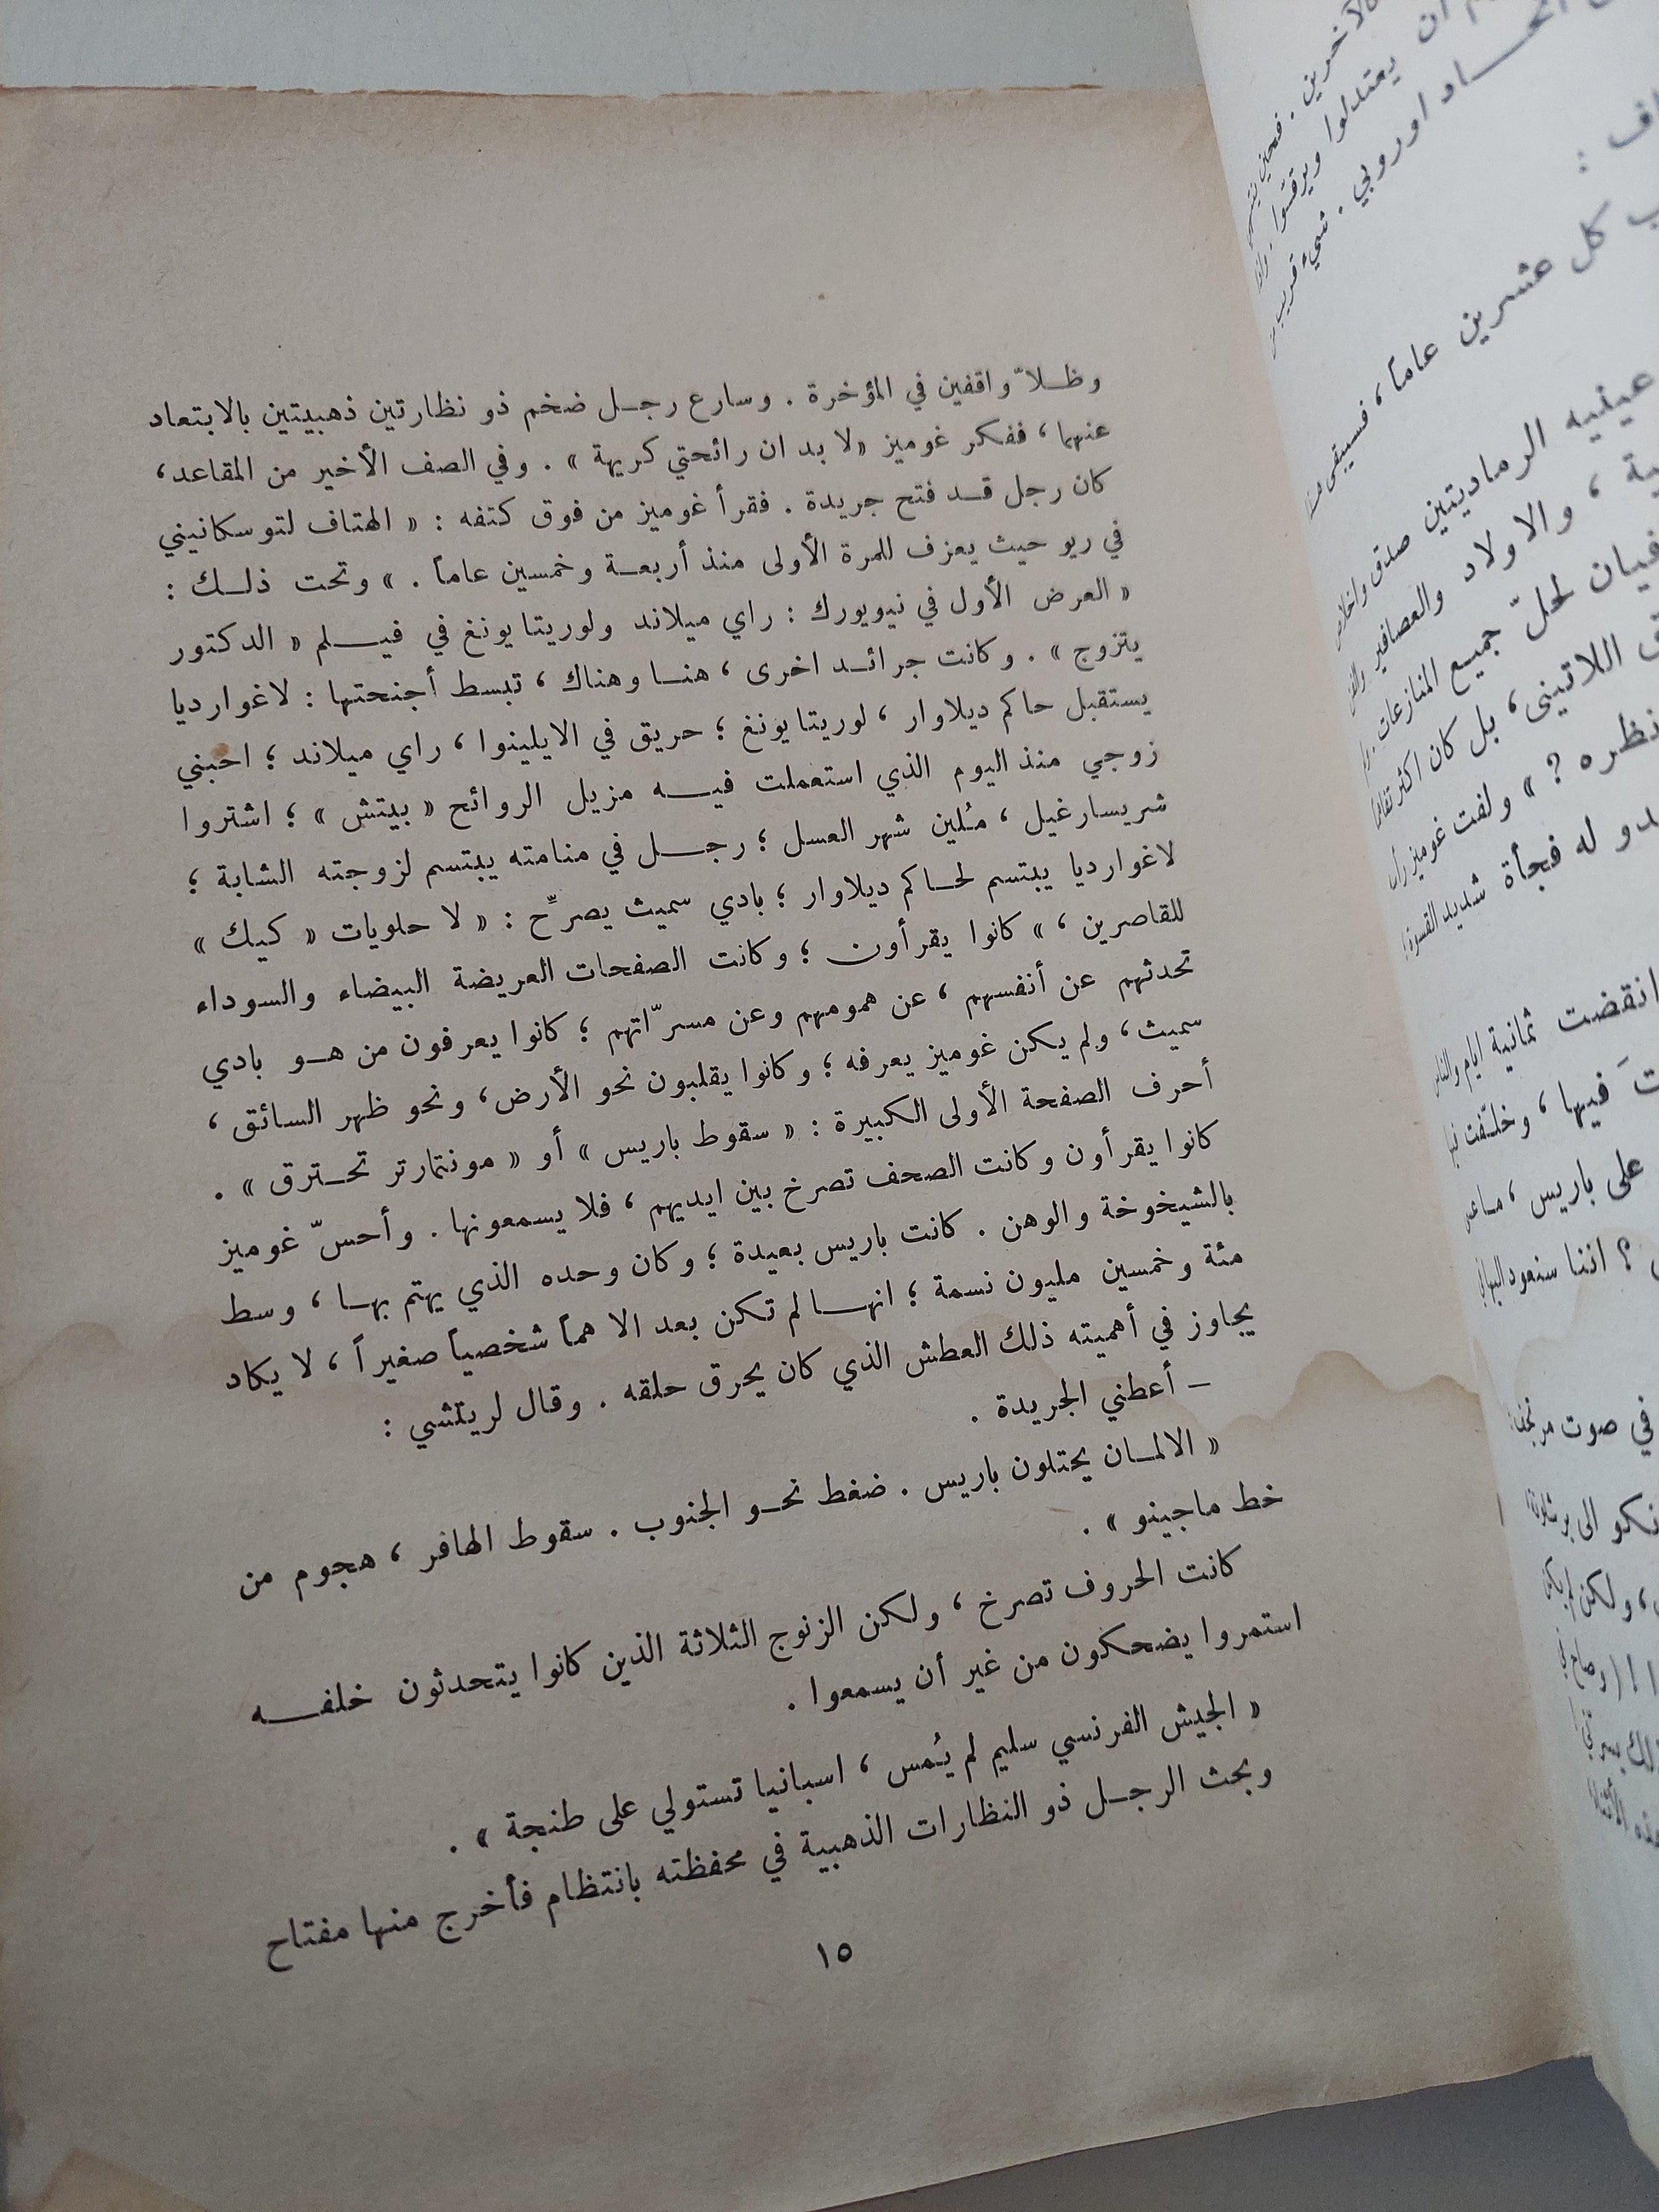 وظلاّ واقفين في المؤخرة . وسارع رجل ضخم ذو نظارتين ذهبيتين بالابتعاد
عنهما ، ففكر غوميز « لا بد ان رائحتي كريهة » . وفي الصف الأخير من المقاعد ،
كان رجل قد فتح جريدة . فقرأ غوميز من فوق كتفه : « الهتاف لتوسكانيني
في ريو حيث يعزف للمرة الأولى منذ أربعة وخمسين عاماً . » وتحت ذلك :
« العرض الأول في نيويورك : راي ميلاند ولوريتا يونغ في فيلم « الدكتور
يتزوج » . وكانت جرائد اخرى ، هنا وهناك ، تبسط أجنحتها : لاغوارديا
يستقبل حاكم ديلاوار ، لوريتا يونغ ؛ حريق في الايلينوا ، راي ميلاند ؛ احبني
زوجي منذ اليوم الذي استعملت فيه مزيل الروائح « بيتش » ؛ اشتروا
شريسارغيل ، مُلين شهر العسل ؛ رجل في منامته يبتسم لزوجته الشابة ؛
لاغوارديا يبتسم لحاكم ديلاوار ؛ بادي سميث يصرّح : « لا حلويات « كيك »
للقاصرين ، » كانوا يقرأون ؛ وكانت الصفحات العريضة البيضاء والسوداء
تحدثهم عن أنفسهم ، عن همومهم وعن مسرّاتهم ؛ كانوا يعرفون من هو بادي
سميث ، ولم يكن غوميز يعرفه ؛ وكانوا يقلبون نحو الأرض ، ونحو ظهر السائق ،
أحرف الصفحة الأولى الكبيرة : « سقوط باريس » أو « مونتمارتر تحترق » .
كانوا يقرأون وكانت الصحف تصرخ بين ايديهم ، فلا يسمعونها . وأحسّ غوميز
بالشيخوخة والوهن . كانت باريس بعيدة ؛ وكان وحده الذي يهتم بها ، وسط
مئة وخمسين مليون نسمة ؛ انها لم تكن بعد الا هماً شخصياً صغيراً ، لا يكاد
يجاوز في أهميته ذلك العطش الذي كان يحرق حلقه . وقال لريتشي :
– أعطني الجريدة .
« الالمان يحتلون باريس . ضغط نحو الجنوب . سقوط الهافر ، هجوم من
خط ماجينو » .
كانت الحروف تصرخ ، ولكن الزنوج الثلاثة الذين كانوا يتحدثون خلفه
استمروا يضحكون من غير أن يسمعوا .
« الجيش الفرنسي سليم لم يُمس ، اسبانيا تستولي على طنجة » .
وبحث الرجل ذو النظارات الذهبية في محفظته بانتظام فأخرج منها مفتاح
١٥
ان يعتدلوا
اوروبي . شيء
كل عشرين عاماً ،
عينيه الرماديتين صدق
، والاولاد والعصافير
لحلّ جميع المنازعات
اللاتيني ، بل كان اكثر
نظره ؟ » ولفت غوميز
له فجأة شديد القسوة
انقضت ثمانية ايام والناس
فيها ، وخلّفت
على باريس ،
؟ اننا سنعود اليها
في صوت
الى برشلونة
، ولكن لم يكن